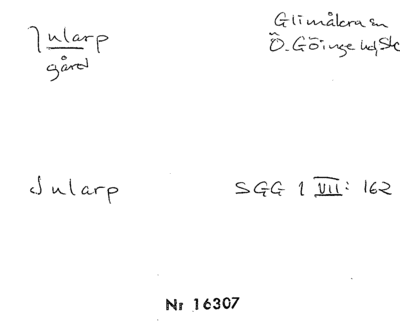 Jularp
gård
Glimåkra sn
Ö. Göinge hd, Sk
Jularp
SGG 1 VII: 162
Nr 16307